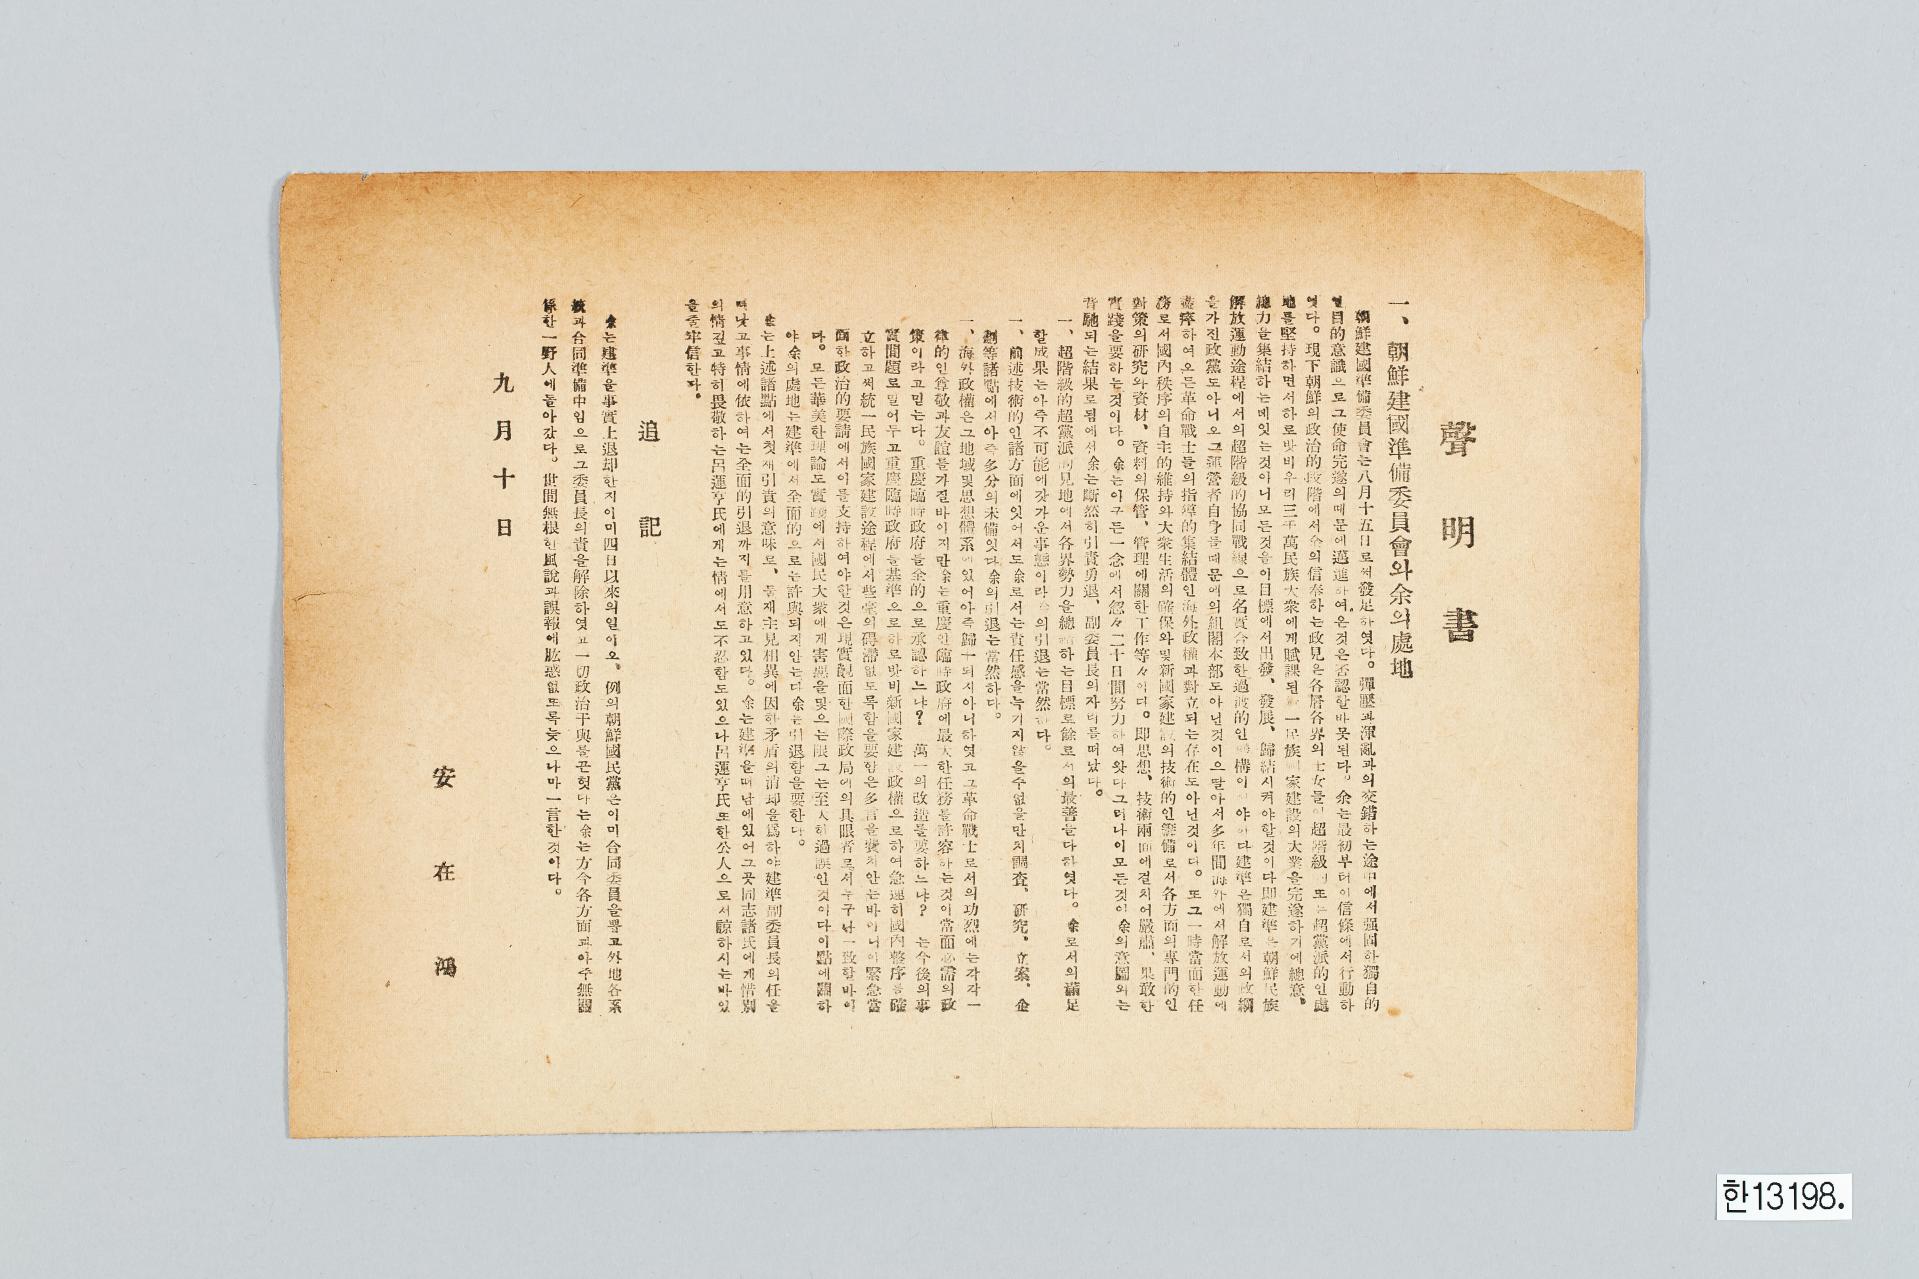 聲明書
一、朝鮮建國準備委員會와余의處地
朝鮮建國準備委員會는八月十五日로써發足하엿다。彈壓과渾亂과의交錯하는途中에서强固한獨自的
인目的意識으로그使命完遂의때문에邁進하여온것은否認할바못된다。余는最初부터이信條에서行動하
엿다。現下朝鮮의政治的段階에서余의信奉하는政見은各層各界의士女들이超階級 또는超黨派的인處
地를堅持하면서하로밧비우리三千萬民族大衆에게賦課된 一民族 家建設의大業을完遂하기에總意、
總力을集結하는데잇는것아니모든것을이目標에서出發、發展、歸結시켜야할것이다卽建準은朝鮮民族
解放運動途程에서의超階級的協同戰線으로名實合致한過渡的인 構이 야 다建準은獨自로서의政綱
을가진政黨도아니오그運營者自身들때문에의組閣本部도아닌것이으딸아서多年間海外에서解放運動에
盡瘁하여오든革命戰士들의指導的集結體인海外政權과對立되는存在도아닌것이다。또그一時當面한任
務로서國內秩序의自主的維持와大衆生活의確保와및新國家建設의技術的인準備로서各方面의專門的인
對策의硏究와資材、資料의保管、管理에關한工作等々이다。卽思想、技術兩面에걸치어嚴肅、果敢한
實踐을要하는것이다。余는이구든一念에서忽々二十日間努力하여왓다그러나이모든것이余의意圖와는
背馳되는結果로됨에서余는斷然히引責勇退、副委員長의자리를떠났다。
一、超階級的超黨派的見地에서各界勢力을總 하는目標로餘로서의最善을다하엿다。余로서의滿足
할成果는아즉不可能에갓가운事態이라余의引退는當然하다。
一、前述技術的인諸方面에잇어서도余로서는責任感을늑기지않을수없을만치調査、硏究、立案、企
劃等諸點에서아즉多分의未備잇다余의引退는當然하다。
一、海外政權은그地域및思想體系에있어아즉歸一되지아니하엿고그革命戰士로서의功烈에는각각一
律的인尊敬과友誼를가질바이지만余는重慶인臨時政府에最大한任務를許容하는것이當面必需의政
策이라고믿는다。重慶臨時政府를全的으로承認하느냐? 萬一의改造를要하느냐? 는今後의事
實問題로밀어두고重慶臨時政府를基準으로하로밧비新國家建設政權으로하여急速히國內整序를確
立하고써統一民族國家建設途程에서些毫의碍滯없도록함을要함은多言을費치안는바이니이緊急當
面한政治的要請에서이를支持하여야할것은現實觀面한國際政局에의具眼者로서누구나一致할바이
다。모든華美한理論도實踐에서國民大衆에게害惡을및으는限그는至大히過誤인것이다이點에關하
야余의處地는建準에서全面的으로는許與되지안는다余는引退함을要한다。
余는上述諸點에서첫재引責의意味로、둘재主見相異에因한矛盾의消却을爲하야建準副委員長의任을
떠낫고事情에依하여는全面的引退까지를用意하고있다。余는建準을떠남에있어그곳同志諸氏에게惜別
의情깊고特히畏敬하는呂運亨氏에게는情에서도不忍함도있으나呂運亨氏또한公人으로서諒하시는바있
을줄牢信한다。
追記
余는建準을事實上退却한지이미四日以來의일이오、例의朝鮮國民黨은이미合同委員을뽑고外地各系
統과合同準備中임으로그委員長의責을解除하엿고一切政治干與를끈헛다는余는方今各方面과아주無關
係한一野人에돌아갔다。世間無根한風說과誤報에眩惑없또록늦으나마一言한것이다。
九月十日
安在鴻
한13198.